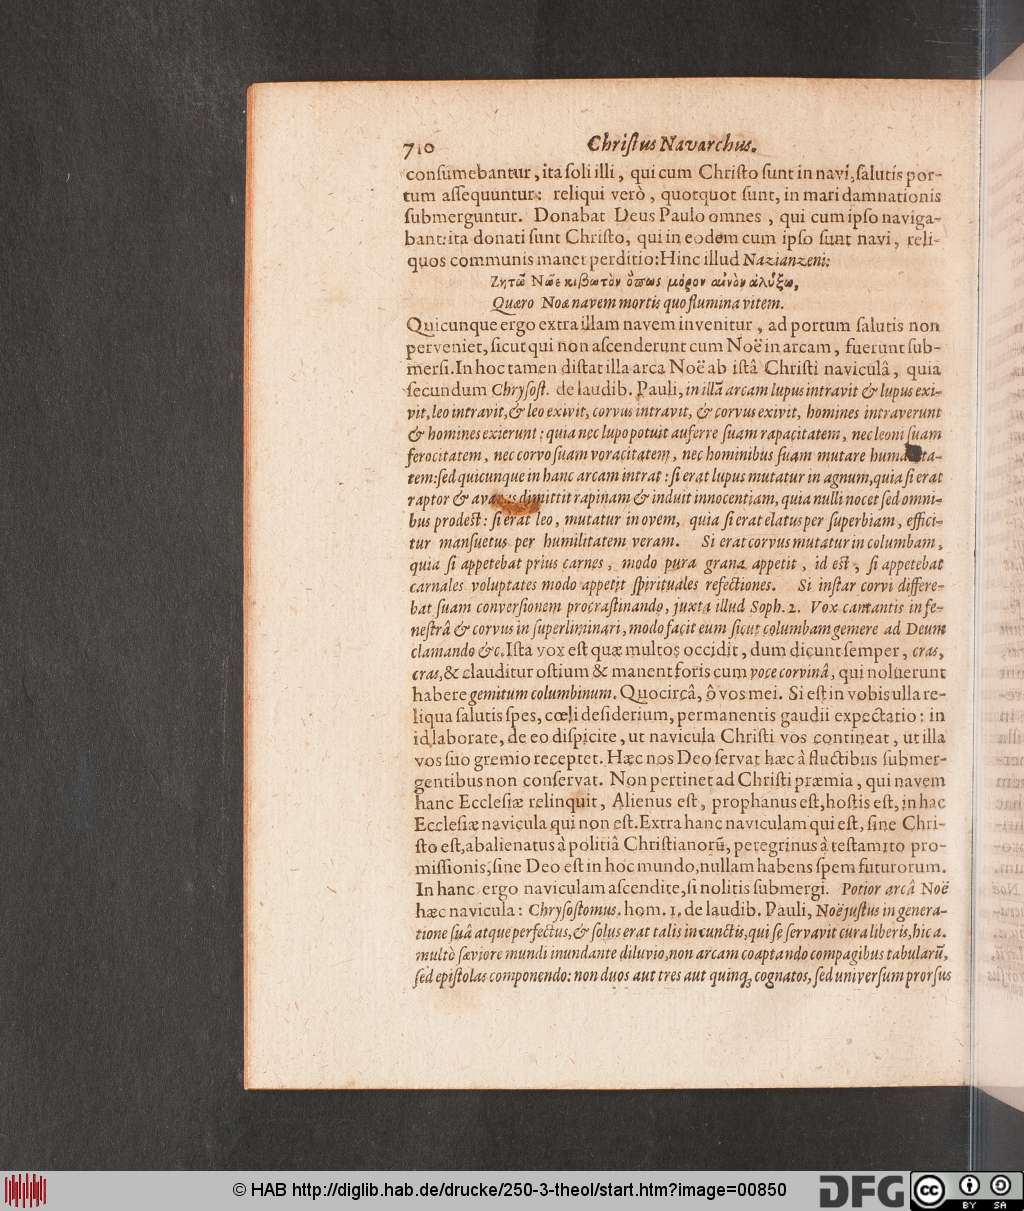 710 Christus Navarchus.
consumebantur, ita soli illi, qui cum Christo sunt in navi, salutis por-
tum assequuntur: reliqui verò, quotquot sunt, in mari damnationis
submerguntur. Donabat Deus Paulo omnes, qui cum ipso naviga-
bant: ita donati sunt Christo, qui in eodem cum ipso sunt navi, reli-
quos communis manet perditio: Hinc illud Nazianzeni:
Ζητῶ Νῶε κιβωτὸν ὅπως μόρον αἰνὸν ἀλύξω,
Quæro Noæ navem mortis quo flumina vitem.
Quicunque ergo extra illam navem invenitur, ad portum salutis non
perveniet, sicut qui non ascenderunt cum Noë in arcam, fuerunt sub-
mersi. In hoc tamen distat illa arca Noë ab istâ Christi naviculâ, quia
secundum Chrysost. de laudib. Pauli, in illã arcam lupus intravit & lupus exi-
vit, leo intravit, & leo exivit, corvus intravit, & corvus exivit, homines intraverunt
& homines exierunt: quia nec lupo potuit auferre suam rapacitatem, nec leoni suam
ferocitatem, nec corvo suam voracitatem, nec hominibus suam mutare humanita-
tem: sed quicunque in hanc arcam intrat: si erat lupus mutatur in agnum, quia si erat
raptor & avarus dimittit rapinam & induit innocentiam, quia nulli nocet sed omni-
bus prodest: si erat leo, mutatur in ovem, quia si erat elatus per superbiam, effici-
tur mansuetus per humilitatem veram. Si erat corvus mutatur in columbam,
quia si appetebat prius carnes, modo pura grana appetit, id est, si appetebat
carnales voluptates modo appetit spirituales refectiones. Si instar corvi differe-
bat suam conversionem procrastinando, juxta illud Soph. 2. Vox cantantis in fe-
nestrâ & corvus in superliminari, modo facit eum sicut columbam gemere ad Deum
clamando &c. Ista vox est quæ multos occidit, dum dicunt semper, cras,
cras, & clauditur ostium & manent foris cum voce corvinâ, qui noluerunt
habere gemitum columbinum. Quocircâ, ô vos mei. Si est in vobis ulla re-
liqua salutis spes, cœli desiderium, permanentis gaudii expectatio: in
id laborate, de eo dispicite, ut navicula Christi vos contineat, ut illa
vos suo gremio receptet. Hæc nos Deo servat hæc à fluctibus submer-
gentibus non conservat. Non pertinet ad Christi præmia, qui navem
hanc Ecclesiæ relinquit, Alienus est, prophanus est, hostis est, in hac
Ecclesiæ navicula qui non est. Extra hanc naviculam qui est, sine Chri-
sto est, abalienatus à politiâ Christianorũ, peregrinus à testam̃to pro-
missionis, sine Deo est in hoc mundo, nullam habens spem futurorum.
In hanc ergo naviculam ascendite, si nolitis submergi. Potior arcâ Noë
hæc navicula: Chrysostomus. hom. 1. de laudib. Pauli, Noë justus in genera-
tione suâ atque perfectus, & solus erat talis in cunctis, qui se servavit cura liberis, hic a.
multò sæviore mundi inundante diluvio, non arcam coaptando compagibus tabularũ,
sed epistolas componendo: non duos aut tres aut quinq; cognatos, sed universum prorsus
© HAB http://diglib.hab.de/drucke/250-3-theol/start.htm?image=00850
DFG
cc BY SA